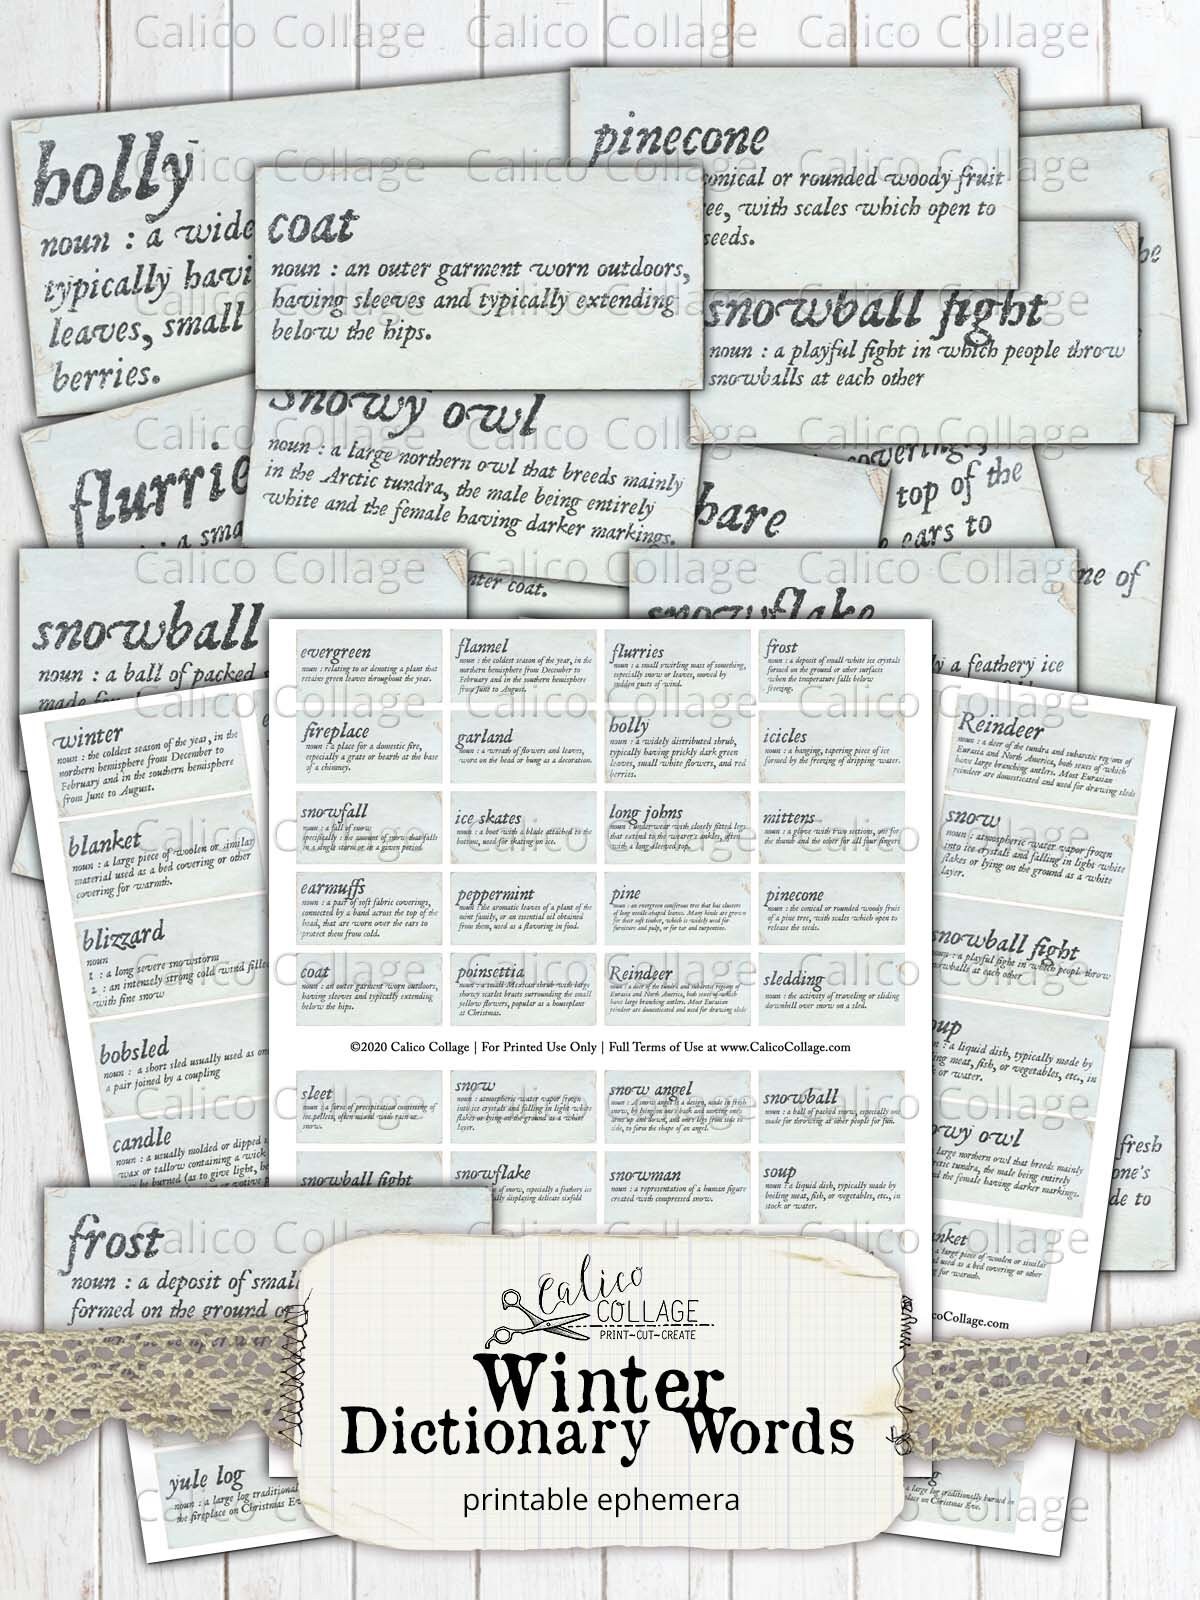 Calico Collage Calico Collage Calico Collage
holly
noun : a wide
typically havi
leaves, small
berries.
pinecone
onical or rounded woody fruit
ree, with scales which open to
seeds.
coat
noun : an outer garment worn outdoors,
having sleeves and typically extending
below the hips.
be
snowball fight
noun : a playful fight in which people throw
snowballs at each other
snowy owl
noun : a large northern owl that breeds mainly
in the Arctic tundra, the male being entirely
white and the female having darker markings.
flurrie
a sma
hare
covering
top of the
ears to
nter coat.
ne of
snowball
noun : a ball of packed
made for
snowflake
ly a feathery ice
winter
noun : the coldest season of the year, in the
northern hemisphere from December to
February and in the southern hemisphere
from June to August.
blanket
noun : a large piece of woolen or similar
material used as a bed covering or other
covering for warmth.
blizzard
noun
1 : a long severe snowstorm
2 : an intensely strong cold wind filled
with fine snow
bobsled
noun : a short sled usually used as one
a pair joined by a coupling
candle
noun : a usually molded or dipped
wax or tallow containing a wick
be burned (as to give light, he
or votive
evergreen
noun : relating to or denoting a plant that
retains green leaves throughout the year.
flannel
noun : the coldest season of the year, in the
northern hemisphere from December to
February and in the southern hemisphere
from June to August.
flurries
noun : a small swirling mass of something,
especially snow or leaves, moved by
sudden gusts of wind.
frost
noun : a deposit of small white ice crystals
formed on the ground or other surfaces
when the temperature falls below
freezing.
fireplace
noun : a place for a domestic fire,
especially a grate or hearth at the base
of a chimney.
garland
noun : a wreath of flowers and leaves,
worn on the head or hung as a decoration.
holly
noun : a widely distributed shrub,
typically having prickly dark green
leaves, small white flowers, and red
berries.
icicles
noun : a hanging, tapering piece of ice
formed by the freezing of dripping water.
snowfall
noun : a fall of snow
specifically : the amount of snow that falls
in a single storm or in a given period
ice skates
noun : a boot with a blade attached to the
bottom, used for skating on ice.
long johns
noun : underwear with closely fitted legs
that extend to the wearer's ankles, often
with a long-sleeved top.
mittens
noun : a glove with two sections, one for
the thumb and the other for all four fingers
earmuffs
noun : a pair of soft fabric coverings,
connected by a band across the top of the
head, that are worn over the ears to
protect them from cold.
peppermint
noun : the aromatic leaves of a plant of the
mint family, or an essential oil obtained
from them, used as a flavoring in food.
pine
noun : an evergreen coniferous tree that has clusters
of long needle-shaped leaves. Many kinds are grown
for their soft timber, which is widely used for
furniture and pulp, or for tar and turpentine.
pinecone
noun : the conical or rounded woody fruit
of a pine tree, with scales which open to
release the seeds.
coat
noun : an outer garment worn outdoors,
having sleeves and typically extending
below the hips.
poinsettia
noun : a small Mexican shrub with large
showy scarlet bracts surrounding the small
yellow flowers, popular as a houseplant
at Christmas.
Reindeer
noun : a deer of the tundra and subarctic regions of
Eurasia and North America, both sexes of which
have large branching antlers. Most Eurasian
reindeer are domesticated and used for drawing sleds
sledding
noun : the activity of traveling or sliding
downhill over snow on a sled.
©2020 Calico Collage | For Printed Use Only | Full Terms of Use at www.CalicoCollage.com
sleet
noun : a form of precipitation consisting of
ice pellets, often mixed with rain or
snow.
snow
noun : atmospheric water vapor frozen
into ice crystals and falling in light white
flakes or lying on the ground as a white
layer.
snow angel
snowball
noun : a ball of packed snow, especially one
made for throwing at other people for fun.
snowball fight
snowflake
of snow, especially a feathery ice
ally displaying delicate sixfold
snowman
noun : a representation of a human figure
created with compressed snow.
soup
noun : a liquid dish, typically made by
boiling meat, fish, or vegetables, etc., in
stock or water.
Reindeer
noun : a deer of the tundra and subarctic regions of
Eurasia and North America, both sexes of which
have large branching antlers. Most Eurasian
reindeer are domesticated and used for drawing sleds
snow
noun : atmospheric water vapor frozen
into ice crystals and falling in light white
flakes or lying on the ground as a white
layer.
snowball fight
noun : a playful fight in which people throw
snowballs at each other
oup
: a liquid dish, typically made by
ling meat, fish, or vegetables, etc., in
or water.
owy owl
large northern owl that breeds mainly
rctic tundra, the male being entirely
d the female having darker markings.
nket
large piece of woolen or similar
used as a bed covering or other
for warmth.
coCollage.com
fresh
one's
de to
frost
noun : a deposit of small
formed on the ground or
Calico
COLLAGE
PRINT-CUT-CREATE
Winter
Dictionary Words
printable ephemera
yule log
noun : a large log traditional
the fireplace on Christmas Eve.
g
large log traditionally burned in
place on Christmas Eve.